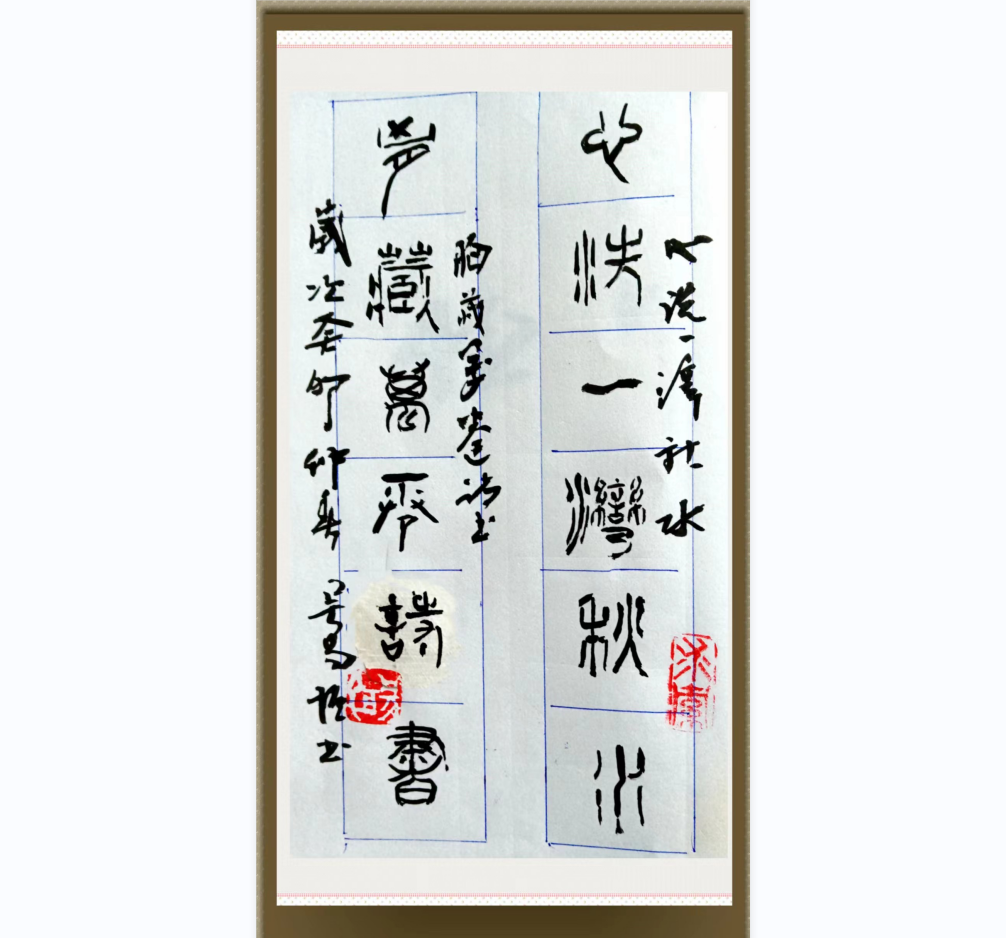 心洗一湾秋水
心洗一灣秋水
胸藏萬卷诗书
匈藏萬卷詩書
歲次癸卯仲春 书